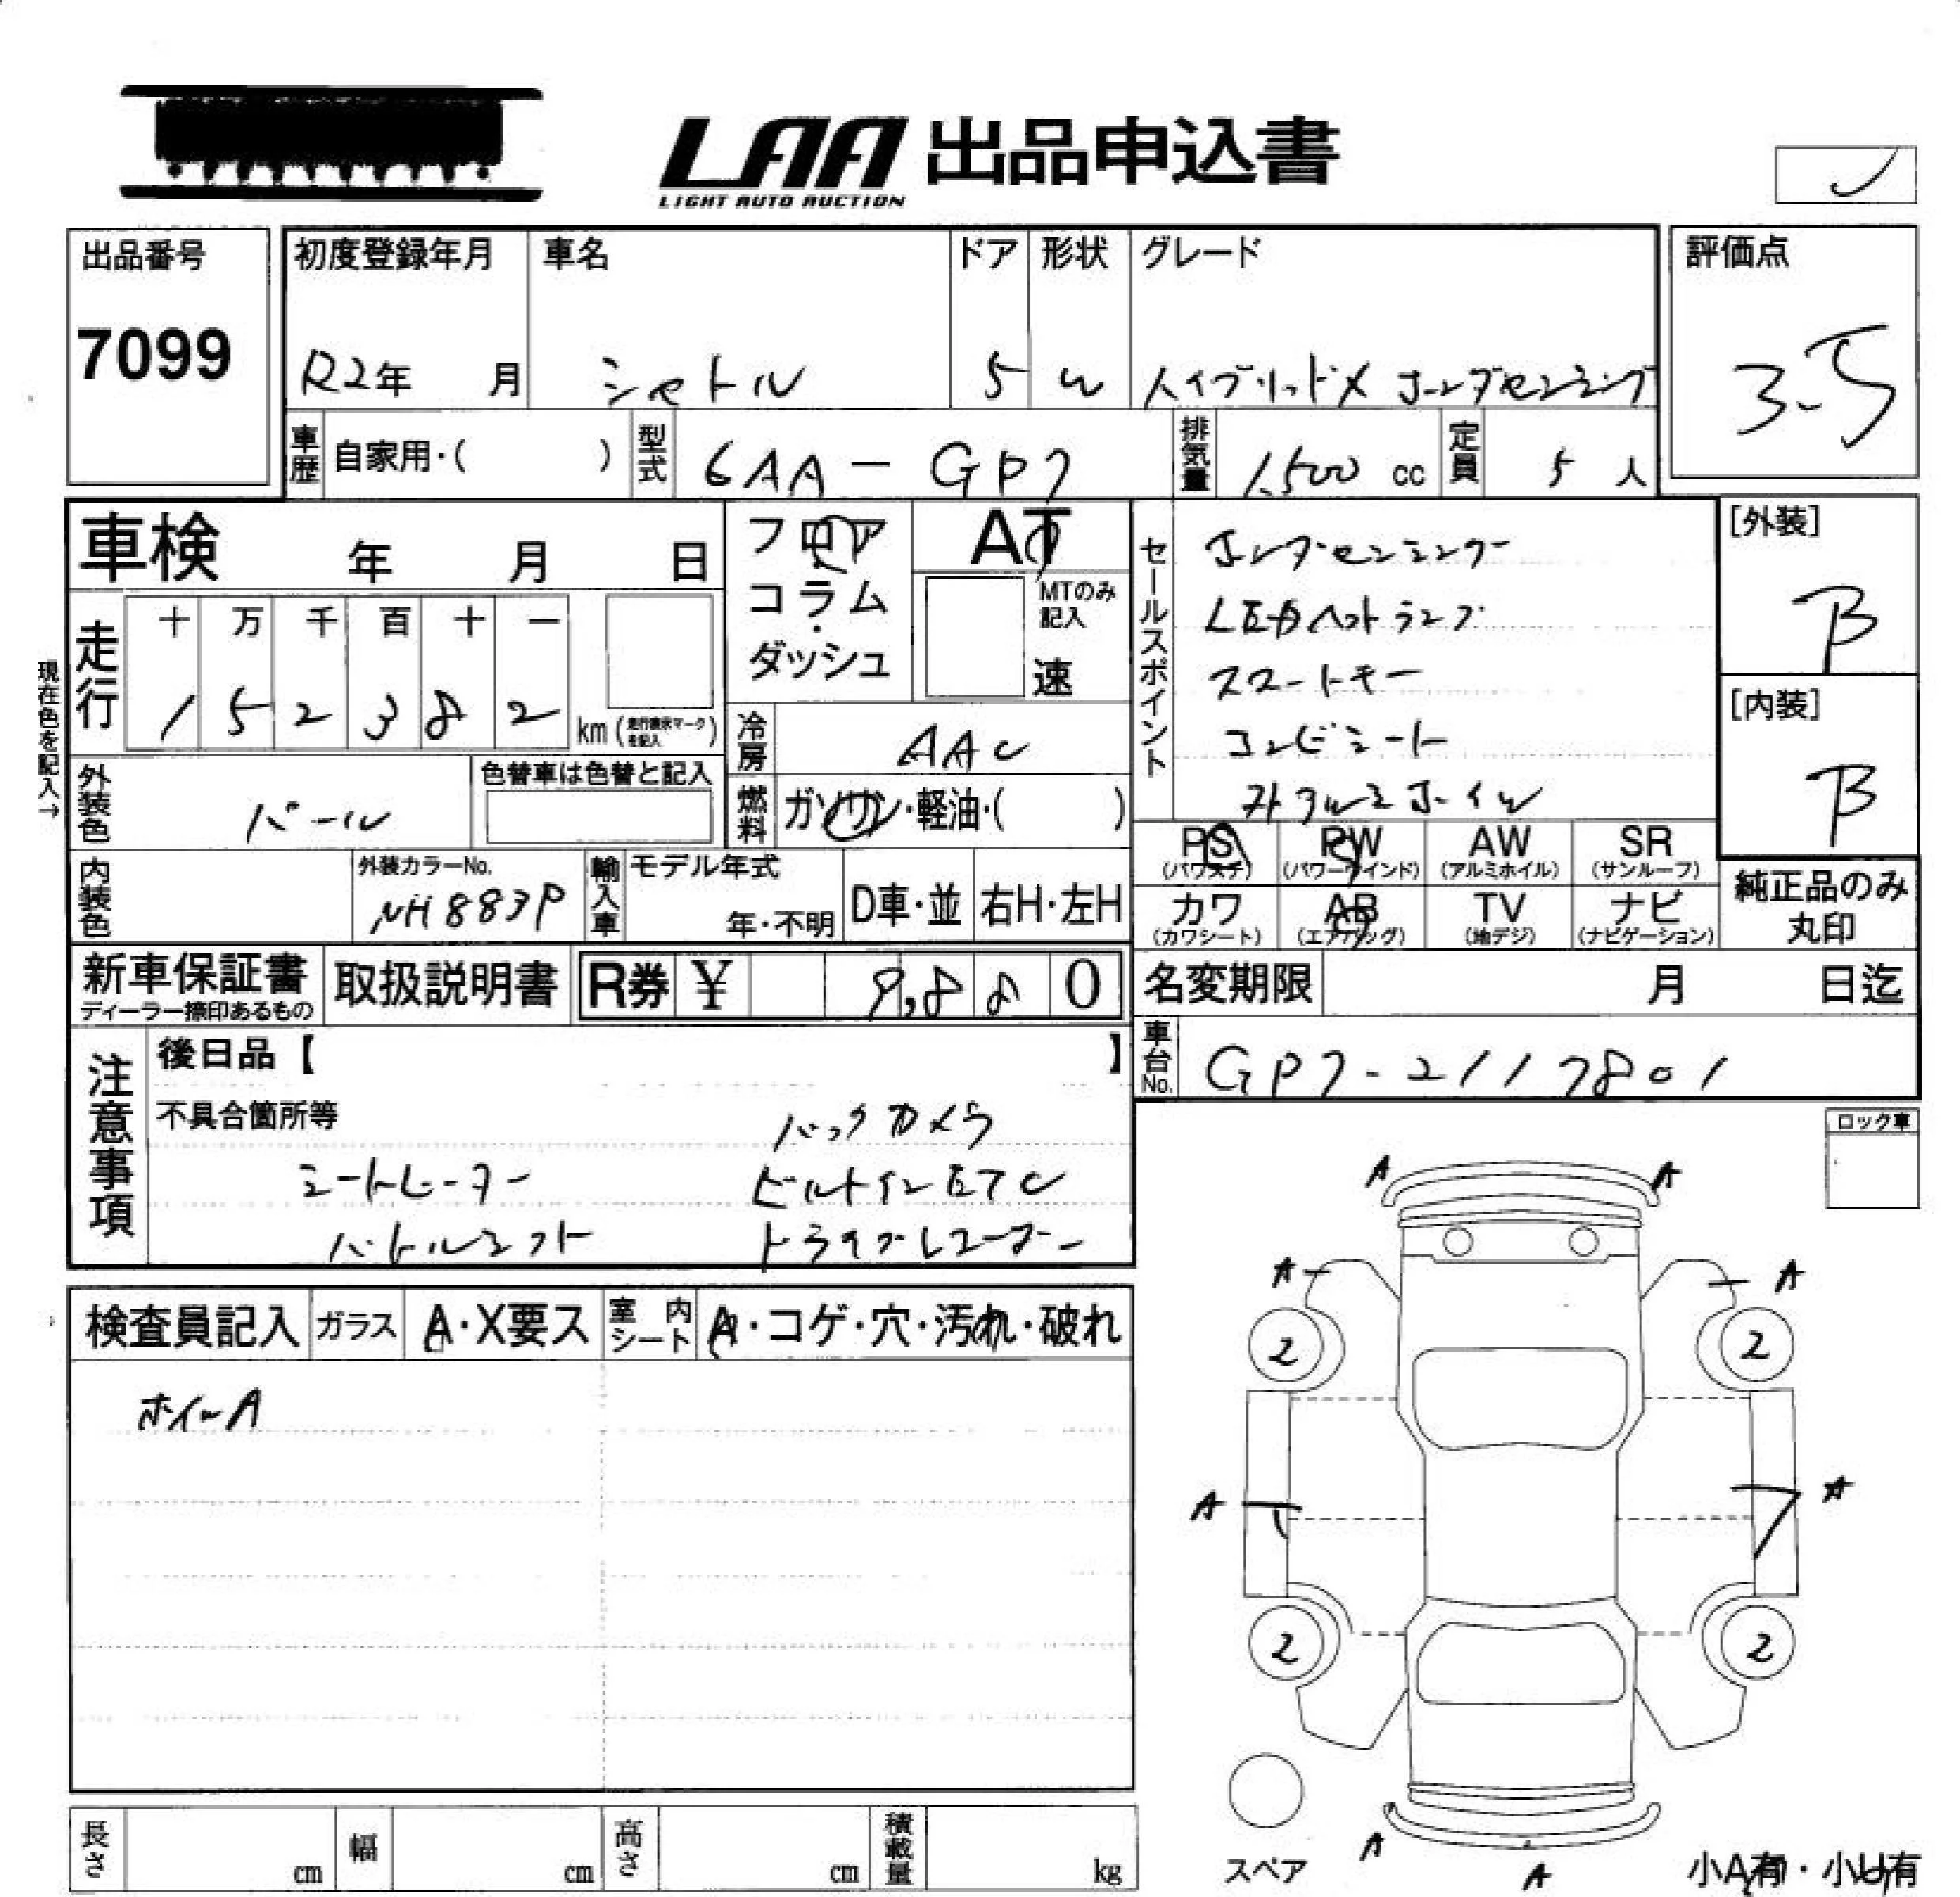 LAA 出品申込書
LIGHT AUTO AUCTION
出品番号
7099
初度登録年月
R2年 月
車名
シャトル
ドア
5
形状
W
グレード
ハイブリッドX ホンダセンシング
評価点
3.5
車歴 自家用・( )
型式 6AA-GP7
排気量 1,500 cc
定員 5 人
車検 年 月 日
現在色を記入→
走行
十 万 千 百 十 一
1 5 2 3 8 2 km (走行表示マークを記入)
フロア
コラム・
ダッシュ
AT
MTのみ記入
速
冷房 AAC
燃料 ガソリン・軽油・( )
セールスポイント
ホンダセンシング
LEDヘッドランプ
スマートキー
コンビシート
アルミホイル
[外装]
B
[内装]
B
外装色 パール
色替車は色替と記入
内装色
外装カラーNo.
NH883P
輸入車
モデル年式
年・不明
D車・並
右H・左H
PS
(パワステ)
PW
(パワーウインド)
AW
(アルミホイル)
SR
(サンルーフ)
カワ
(カワシート)
AB
(エアバッグ)
TV
(地デジ)
ナビ
(ナビゲーション)
純正品のみ
丸印
新車保証書
ディーラー捺印あるもの
取扱説明書
R券 ¥ 9,880
名変期限 月 日迄
車台No. GP7-2117801
注意事項
後日品【 】
不具合箇所等
バックカメラ
シートヒーター
ビルトインETC
パドルシフト
ドライブレコーダー
ロック車
検査員記入
ガラス A・X要ス
室内シート A・コゲ・穴・汚れ・破れ
ホイルA
A A
A A
2 2
A A
2 2
スペア
A
A
小A有・小U有
長さ cm
幅 cm
高さ cm
積載量 kg